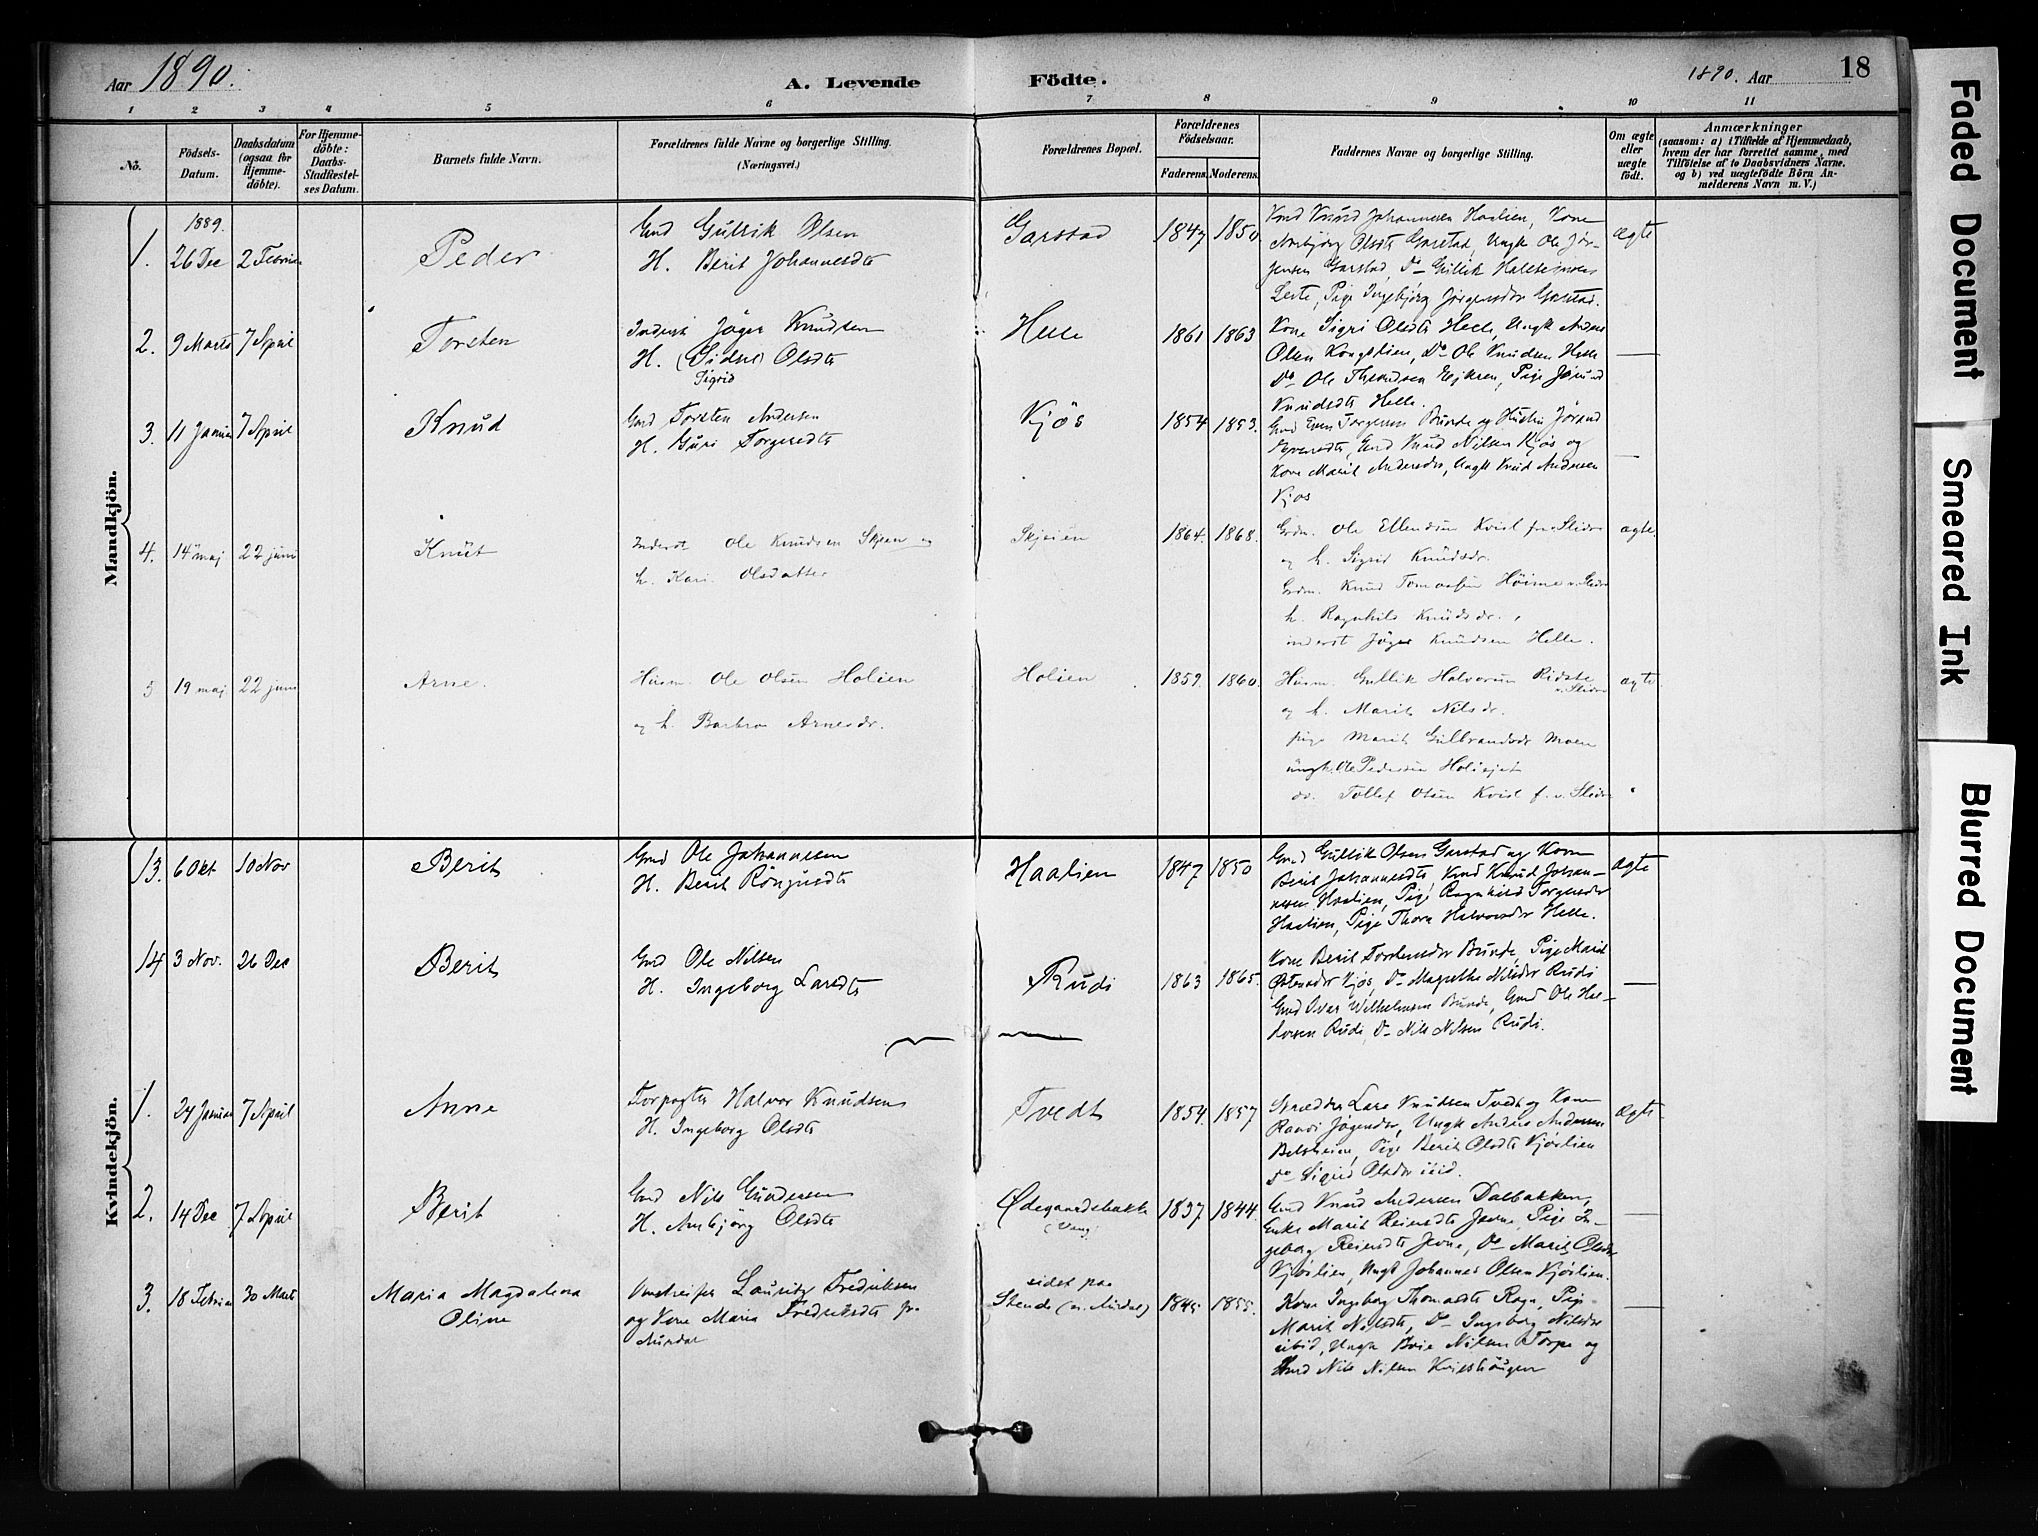 Aar 1890.
A. Levende Födte.
1890. Aar 18
1 2 3 4 5 6 7 8 9 10 11
No.
Födsels-
Datum.
Daabsdatum
(ogsaa for
Hjemme-
döbte).
For Hjemme-
döbte:
Daabs-
Stadfæstel-
ses Datum.
Barnets fulde Navn.
Forældrenes fulde Navne og borgerlige Stilling.
(Næringsvei.)
Forældrenes Bopæl.
Forældrenes
Födselsaar.
Faderens. Moderens.
Faddernes Navne og borgerlige Stilling.
Om ægte
eller
uægte
födt.
Anmærkninger
(saasom: a) i Tilfælde af Hjemmedaab,
hvem der har forrettet samme, med
Tilföielse af to Daabsvidners Navne,
og b) ved uægtefödte Börn An-
melderens Navn m. V.)
Mandkjön.
1889.
1. 26 Dec 2 Februar
Peder
Gmd Gullik Olsen
H. Berit Johannesdt
Garstad
1847 1850
Gmd Knud Johannesen Haalien, Kone
Ambjörg Olsdt Garstad, Ungk Ole Jör-
gensen Garstad, Do Gullik
Pige Ingebjörg Jörgensdr Garstad.
ægte
2. 9 Marts 7 April
Torsten
Inderst Jöger Knudsen
H. (Sidsel) Olsdt
Sigrid
Helle
1861 1863
Kone Sigri Olsdt Helle, Ungk Anders
Olsen Kongslien, Do Ole Knudsen Helle
Do Ole Pige Jörand
Knudsdt Helle.
—
3. 11 Januar 7 April
Knud
Gmd Torsten Andersen
H. Guri Torgersdt
Kjös
1854 1853.
Gmd Even Torgersen Bunde og Hustru Jörand
Gmd Knud Nilsen Kjös og
Kone Marit Andersdr, Ungk Knud Andersen
Kjos
—
4. 14 maj 22 juni
Knut
Inderst Ole Knudsen Skjeien og
h. Kari Olsdatter
Skjeien
1864. 1868.
Grdm. Ole Ellendsen Kvist fra v. Slidre
og h. Sigrid Knudsdr.
Grdm. Knud Tomassen Höime v. Slidre
h. Ragnhild Knudsdr.,
inderst Jöger Knudsen Helle.
ægte.
5 19 maj 22 juni
Arne.
Husm. Ole Olsen Holien
og h. Barbro Arnesdr.
Holien
1859. 1860.
Husm. Gullik Halvorsen Ridste
v. Slidre
og h. Marit Nilsdr.
pige Marit Gulbrandsdr Moen
ungk. Ole Pedersen
do. Tollef Olsen Kvist f. v. Slidre
ægte
Kvindekjön.
13. 6 Okt 10 Nov
Berit
Gmd Ole Johannesen
H. Berit
Haalien
1847 1850
Gmd Gullik Olsen Garstad og Kone
Berit Johannesdt, Gmd Knud Johan-
nesen Haalien, Pige Ragnhild Torgersdr
Haalien, Pige Thora Halvorsdr Helle.
ægte
14 3 Nov. 26 Dec
Berit
Gmd Ole Nilsen
H. Ingeborg Larsdt
Rudi
1863 1865.
Kone Berit Torstensdr Bunde, Pige Marit
Östensdr Kjös, Do Magrethe Nilsdr Rudi
Gmd Iver Wilhelmsen Bunde, Gmd Ole Hal-
vorsen Rudi, Do Nils Nilsen Rudi.
—
1. 24 Januar 7 April
Anne
Forpagter Halvor Knudsen
H. Ingeborg Olsdt
Tvedt
1854. 1857
Lars Knudsen Tvedt og Kone
Randi Jögersdr, Ungk Anders Andersen
Belsheim, Pige Berit Olsdt Kjörlien
Do Sigrid Olsdr ibid.
Ægte
2. 14 Dec 7 April
Berit
Gmd Nils Gundersen
H. Ambjörg Olsdt
Ødegaardsbakke
(Vang)
1837 1844.
Gmd Knud Andersen Dalbakken,
Enke Marit Reiersdt Jevne, Pige In-
geborg Reiersdt Jevne, Do Marit Olsdr
Kjörlien, Ungk Johannes Olsen Kjörlien.
—
3. 18 Februar 30 Marts
Maria Magdalena
Oline
Omstreifer Lauritz Fredriksen
og Kone Maria Fredriksdt fr
Aurdal
sidst paa
Stende (n. Aurdal)
1845 1855.
Kone Ingeborg Thomasdt Rogn, Pige
Marit Nilsdt, Do Ingeborg Nilsdr
ibid, Ungk Nilsen Torpe og
Gmd Nils Nilsen
—
Faded Document
Smeared Ink
Blurred Document